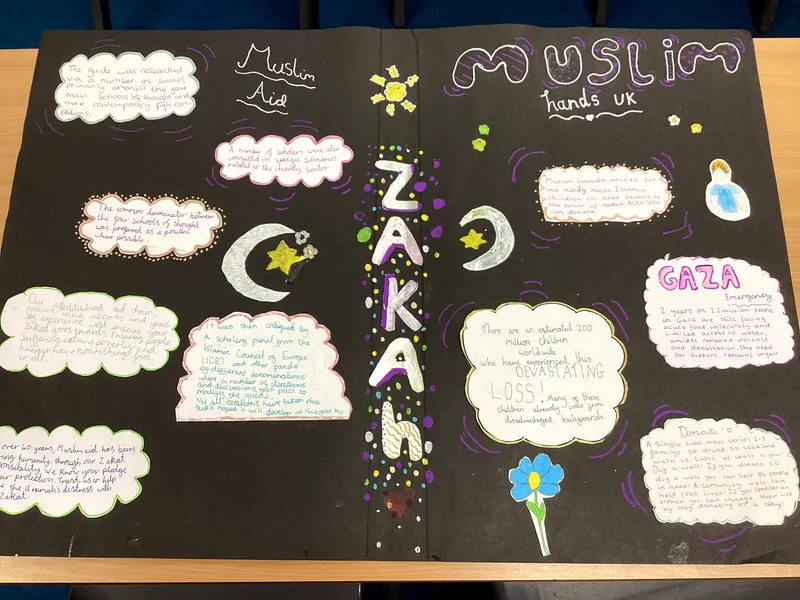 Muslim
Aid
The guide was researched
via a number of sources
primarily amongst the four
main Schools of thought and
more contemporary
A number of scholars were also
consulted on specific scenarios
related to the charity sector
The common denominator between
the four schools of thought
was preferred as a position
where possible.
Our established aid chain,
ground
experience will ensure your
Zakat goes
suffering extreme poverty and
hunger have nourishing food
It was then critiqued by
a scholarly panel from the
Islamic Council of Europe
(ICE) and other panels
of different denominations
where a number of iterations
and discussions took place to
modify the guide.
Not all iterations have taken place
but is hoped it will develop as this goes by.
over 60 years, Muslim aid has been
humanity through our Zakat
We know your pledge
protection. Trust us to help
the Ummah's distress with
Zakat.
ZAKAh
MUSLiM
hands UK
Muslim hands united for
the needy helps Islamic
children in need because
the pillar of zakah ALSO YOU
can donate!
GAZA
Emergency
2 years on 2.1 million people
in Gaza are still facing
acute food insecurity and
limited access to water,
amidst renewed violence
and devastation, the need
for support remains urgent
There are an estimated 200
million children
worldwide
who have experienced this
DEVASTATING
LOSS! Many of these
children already come from
disadvantaged backgrounds.
Donate! :D
A single tube well serves
familys to drink, to cook and
Dig a well! If you donate to
dig a well you can help people
in need. A comunity well can
help 1000 lives! If you sponser an
orphan you can change their life
by only donating a day!